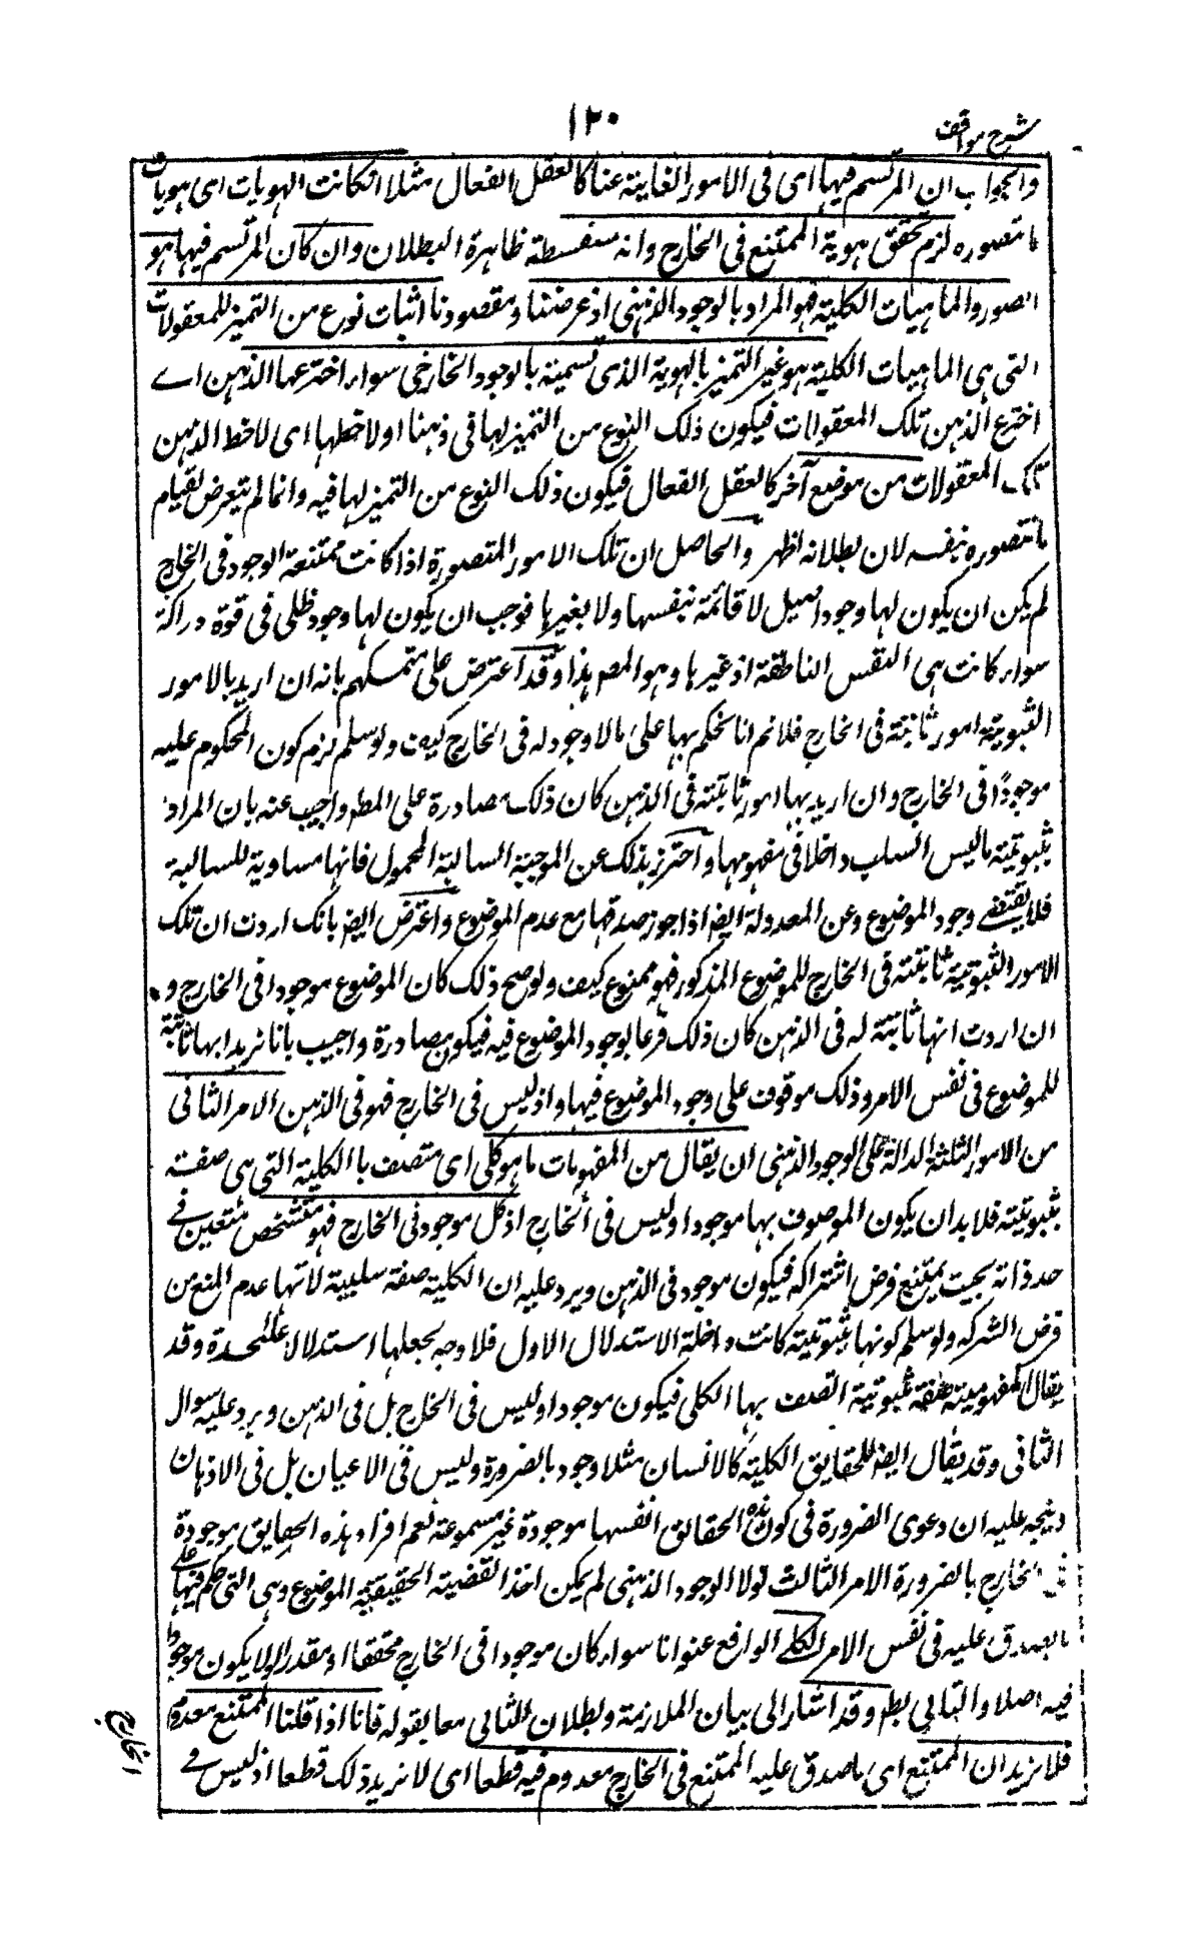 شرح مواقف
١٢٠
والجواب ان المرتسم فيها اى فى الامور الغايبة عنا كالعقل الفعال مثلا ان كانت الهويات اى هويات
ما نتصوره لزم تحقق هوية الممتنع فى الخارج وانه سفسطة ظاهرة البطلان وان كان المرتسم فيها هو
الصور والماهيات الكلية فهو المراد بالوجود الذهنى اذ غرضنا ومقصودنا اثبات نوع من التميز للمعقولات
التى هى الماهيات الكلية هو غير التميز بالهوية الذى نسميه بالوجود الخارجى سواء اخترعها الذهن اے
اخترع الذهن تلك المعقولات فيكون ذلك النوع من التميز لها فى ذهننا اولاحظها اى لاحظ الذهن
تلك المعقولات من موضع آخر كالعقل الفعال فيكون ذلك النوع من التميز لها فيه وانما لم يتعرض لقيام
ما نتصوره بنفسه لان بطلانه اظهر والحاصل ان تلك الامور المتصورة اذا كانت ممتنعة الوجود فى الخارج
لم يكن ان يكون لها وجود اصيل لا قائمة بنفسها ولا بغيرها فوجب ان يكون لها وجود ظلى فى قوة دراكة
سواء كانت هى النفس الناطقة او غيرها وهو المط هذا وقد اعترض على متمسكهم بانه ان اريد بالامور
الثبوتية امور ثابتة فى الخارج فلانم انا نحكم بها على ما لا وجود له فى الخارج كيف ولو سلم لزم كون المحكوم عليه
موجودًا فى الخارج وان اريد بها امور ثابتة فى الذهن كان ذلك مصادرة على المط واجيب عنه بان المراد
بثبوتية ما ليس السلب داخلا فى مفهومها واحترز بذلك عن الموجبة السالبة المحمول فانها مساوية للسالبة
فلا يقتضے وجود الموضوع وعن المعدولة ايضا اذا جوز صدقها مع عدم الموضوع واعترض ايضا بانك اردت ان تلك
الامور الثبوتية ثابتة فى الخارج للموضوع المذكور فهو ممنوع كيف ولو صح ذلك كان الموضوع موجودا فى الخارج و
ان اردت انها ثابتة له فى الذهن كان ذلك فرعا لوجود الموضوع فيه فيكون مصادرة واجيب بانا نريد انها ثابتة
للموضوع فى نفس الامر وذلك موقوف على وجود الموضوع فيها واذ ليس فى الخارج فهو فى الذهن الامر الثانى
من الامور الثلثة الدالة على الوجود الذهنى ان يقال من المفهومات ما هو كلى اى متصف با الكلية التى هى صفة
ثبوتية فلا بد ان يكون الموصوف بها موجودا وليس فى الخارج اذ كل موجود فى الخارج فهو متشخص متعين فے
حد ذاته بحيث يمتنع فرض اشتراكه فيكون موجود فى الذهن ويرد عليه ان الكلية صفة سلبية لانها عدم المنع من
فرض الشركه ولو سلم كونها ثبوتية كانت داخلة الاستدلال الاول فلا وجه لجعلها استدلالا علىحدة وقد
يقال المفهومية صفة ثبوتية اتصف بها الكلى فيكون موجودا وليس فى الخارج بل فى الذهن ويرد عليه سوال
الثانى وقد يقال ايضا للحقايق الكلية كالانسان مثلا وجود بالضرورة وليس فى الاعيان بل فى الاذهان
ويتجه عليه ان دعوى الضرورة فى كون هذه الحقائق انفسها موجودة غير مسموعة نعم افراد هذه الحقايق موجودة
فى الخارج بالضرورة الامر الثالث لولا الوجود الذهنى لم يمكن اخذ القضية الحقيقية الموضوع وهى التى حكم فيها على
ما يصدق عليه فى نفس الامر الكلے الواقع عنوانا سواء كان موجودا فى الخارج محققا او مقدرا اولا يكون موجودا
فيه اصلا والتالى بط وقد اشار الى بيان الملازمة وبطلان التالى معا بقوله فانا اذا قلنا الممتنع معدوم
فلا نريد ان الممتنع اى ما صدق عليه الممتنع فى الخارج معدوم فيه قطعا اى لا نريد ذلك قطعا اذ ليس فے
الخارج